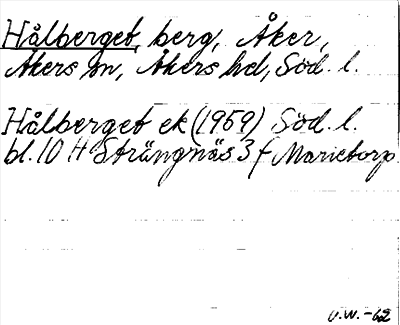 Hålberget, berg, Åker,
Åkers sn, Åkers hd, Söd. l.
Hålberget ek (1959) Söd. l.
bl. 10 H Strängnäs 3 f Marietorp
U.W. -62